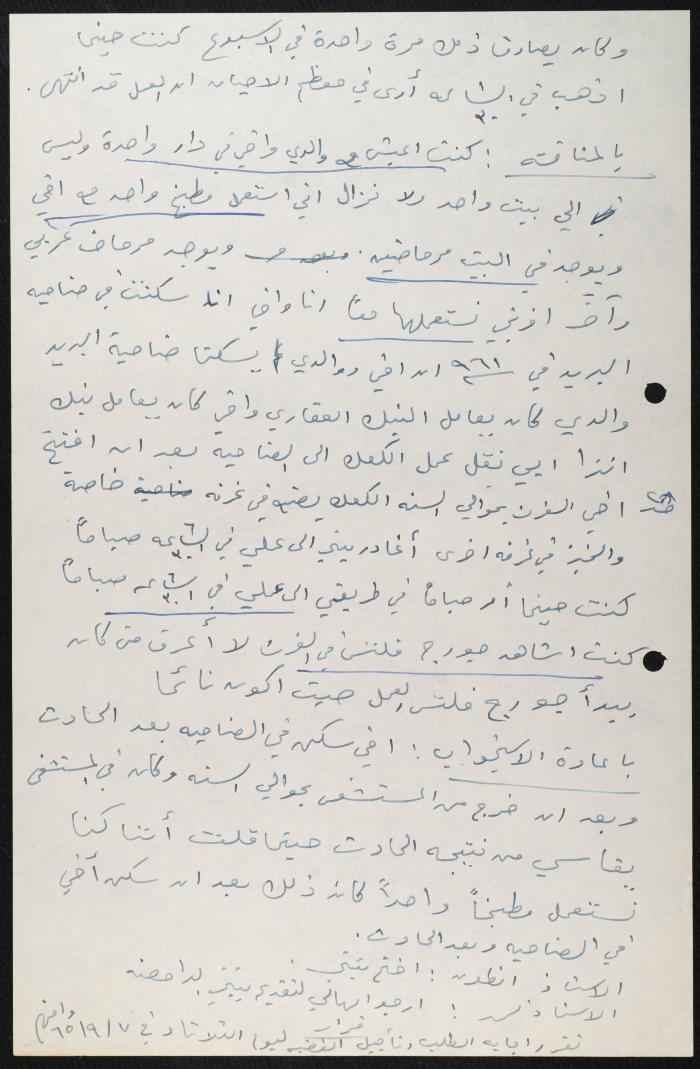 وكان يصادف ذلك مرة واحدة في الاسبوع كنت حينما
اذهب في الساعة أرى في معظم الاحيان ان العمل قد انتهى.
بالمناقشة : كنت اعيش مع والدي واخي في دار واحدة وليس
في بيت واحد ولا نزال اني استعمل مطبخ واحد مع اخي
ويوجد في البيت مرحاضين. ويوجد مرحاض عربي
وآخر افرنجي نستعملها معاً انا واخي انا سكنت في ضاحيه
البريد في ٩٦١ ان اخي ووالدي يسكنا ضاحية البريد
والدي كان يعامل البنك العقاري واخي كان يعامل بنك
انترا ابي نقل عمل الكعك الى الضاحيه بعد ان افتتح
اخي الفرن بحوالي السنه الكعك يصنع في غرفه خاصة
والخبز في غرفه اخرى أغادر بيتي الى عملي في الساعه ٦ صباحاً
كنت حينما أمر صباحاً في طريقي الى عملي في الساعه ٦ صباحاً
كنت اشاهد جورج فلتس في الفرن لا أعرف متى كان
يبدأ جورج فلتس العمل حيث اكون نائما
باعادة الاستجواب : اخي سكن في الضاحيه بعد الحادث
وبعد ان خرج من المستشفى بحوالي السنه وكان في المستشفى
يقاسي من نتيجه الحادث حينما قلت أننا كنا
نستعمل مطبخاً واحداً كان ذلك بعد ان سكن أخي
في الضاحيه وبعد الحادث.
الاستاذ انطون : اختم بينتي.
الاستاذ : ارجو امهالي لتقديم بينتي الداحضه
قرار
تقرر اجابه الطلب وتأجيل القضيه ليوم الثلاثاء في ٦٥/٩/٧